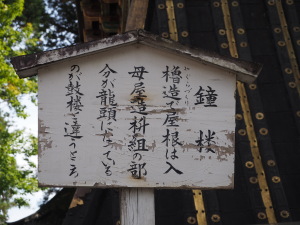 鐘楼
櫓造で屋根は入
母屋、斗組の部
分が龍頭になっている
のが鼓楼と違うところ